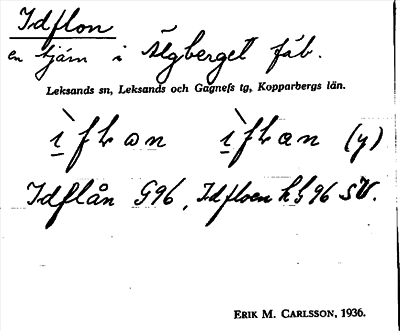 Idflon
en tjärn i Älgberget fäb.
Leksands sn, Leksands och Gagnefs tg, Kopparbergs län.
(y)
Idflån G96, Idfloen hfs 96 SV.
ERIK M. CARLSSON, 1936.